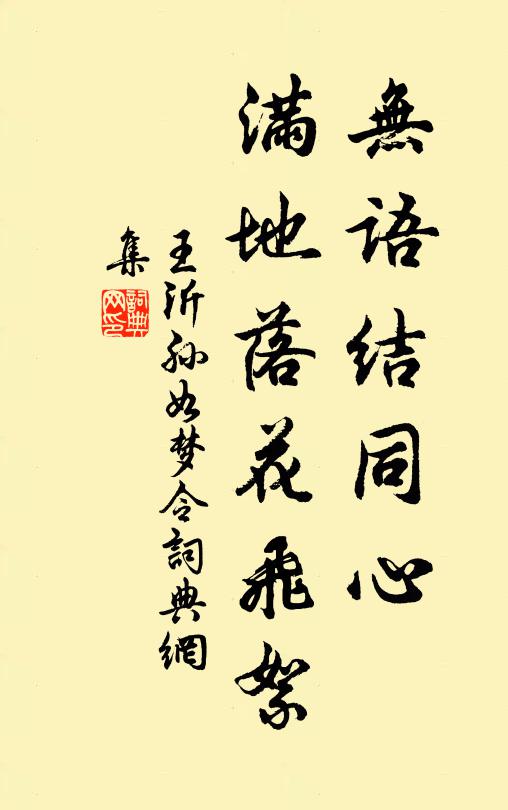 無語結同心
滿地落花飛絮
王沂孫如梦令詞典網
集
詞典
网印